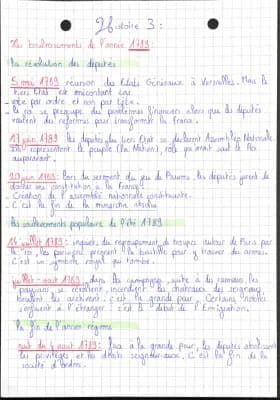 Histoire 3 :
Les bouleversements de l'année 1789 :
La révolution des députés
5 mai 1789 réunion des Etats Généraux à Versailles. Mais le
tiers Etat est mécontent car
- vote par ordre et non par tête.
- le roi se préoccupe des problèmes financiers alors que les députés
veulent des réformes pour transformer la France.
17 juin 1789 les députés du tiers Etat se déclarent Assemblée Nationale
Ils représentent le peuple (la Nation), rôle qui avait seul le Roi
auparavant.
20 juin 1789: Lors du serment du jeu de Paume, les députés jurent de
donner une constitution à la France.
- Création de l'assemblée nationale constituante.
- C'est la fin de la monarchie absolue
Les soulèvements populaires de l'été 1789
14 juillet 1789 : inquiets du regroupement de troupes autour de Paris par
le roi, les parisiens prennent la bastille pour y trouver des armes.
C'est un symbole royal qui tombe.
juillet - août 1789 , dans les campagnes, suite à des rumeurs, les
paysans se révoltent, incendient les chateaux des seigneurs,
brulent les archives : c'est la grande peur. Certains nobles
s'enfuient à l'étranger : c'est le début de l'Emigration.
La fin de l'ancien régime
nuit du 4 août 1789: face à la grande peur, les députés abolissent
les privilèges et les droits seigneuriaux. C'est la fin de la
société d'ordres.